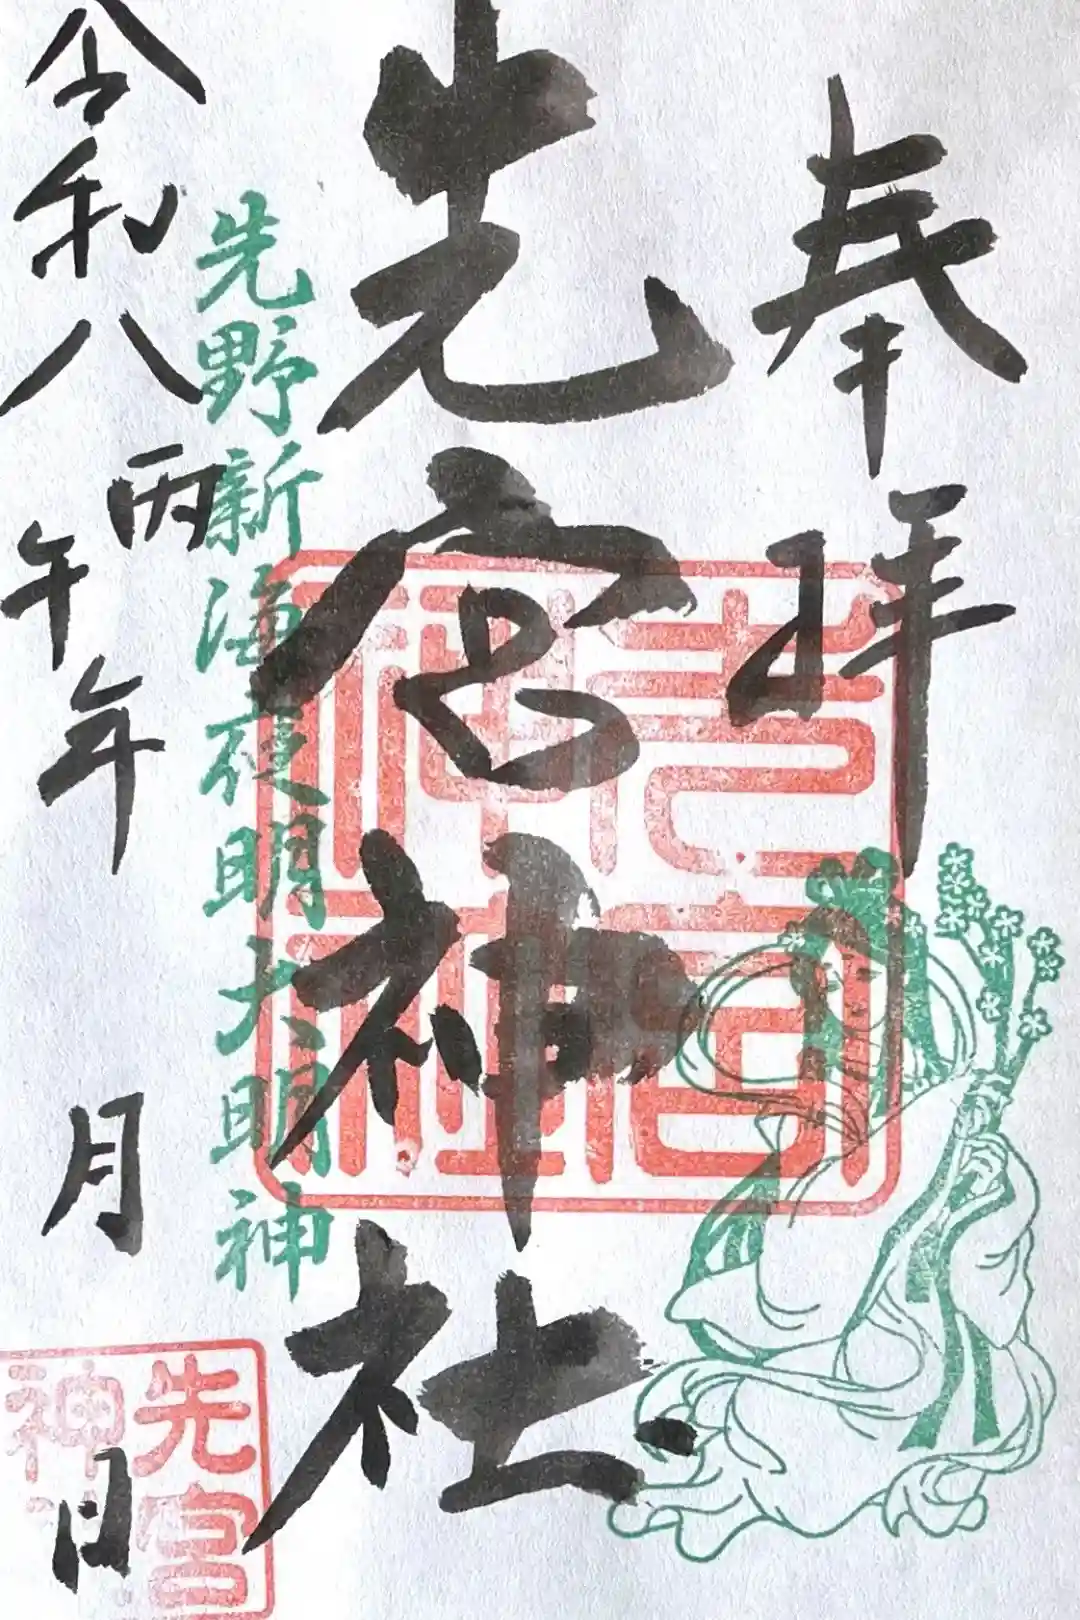 奉拝
先宮神社
先野新海夜明大明神
令和八丙午年 月 日
先宮神社
先宮
神